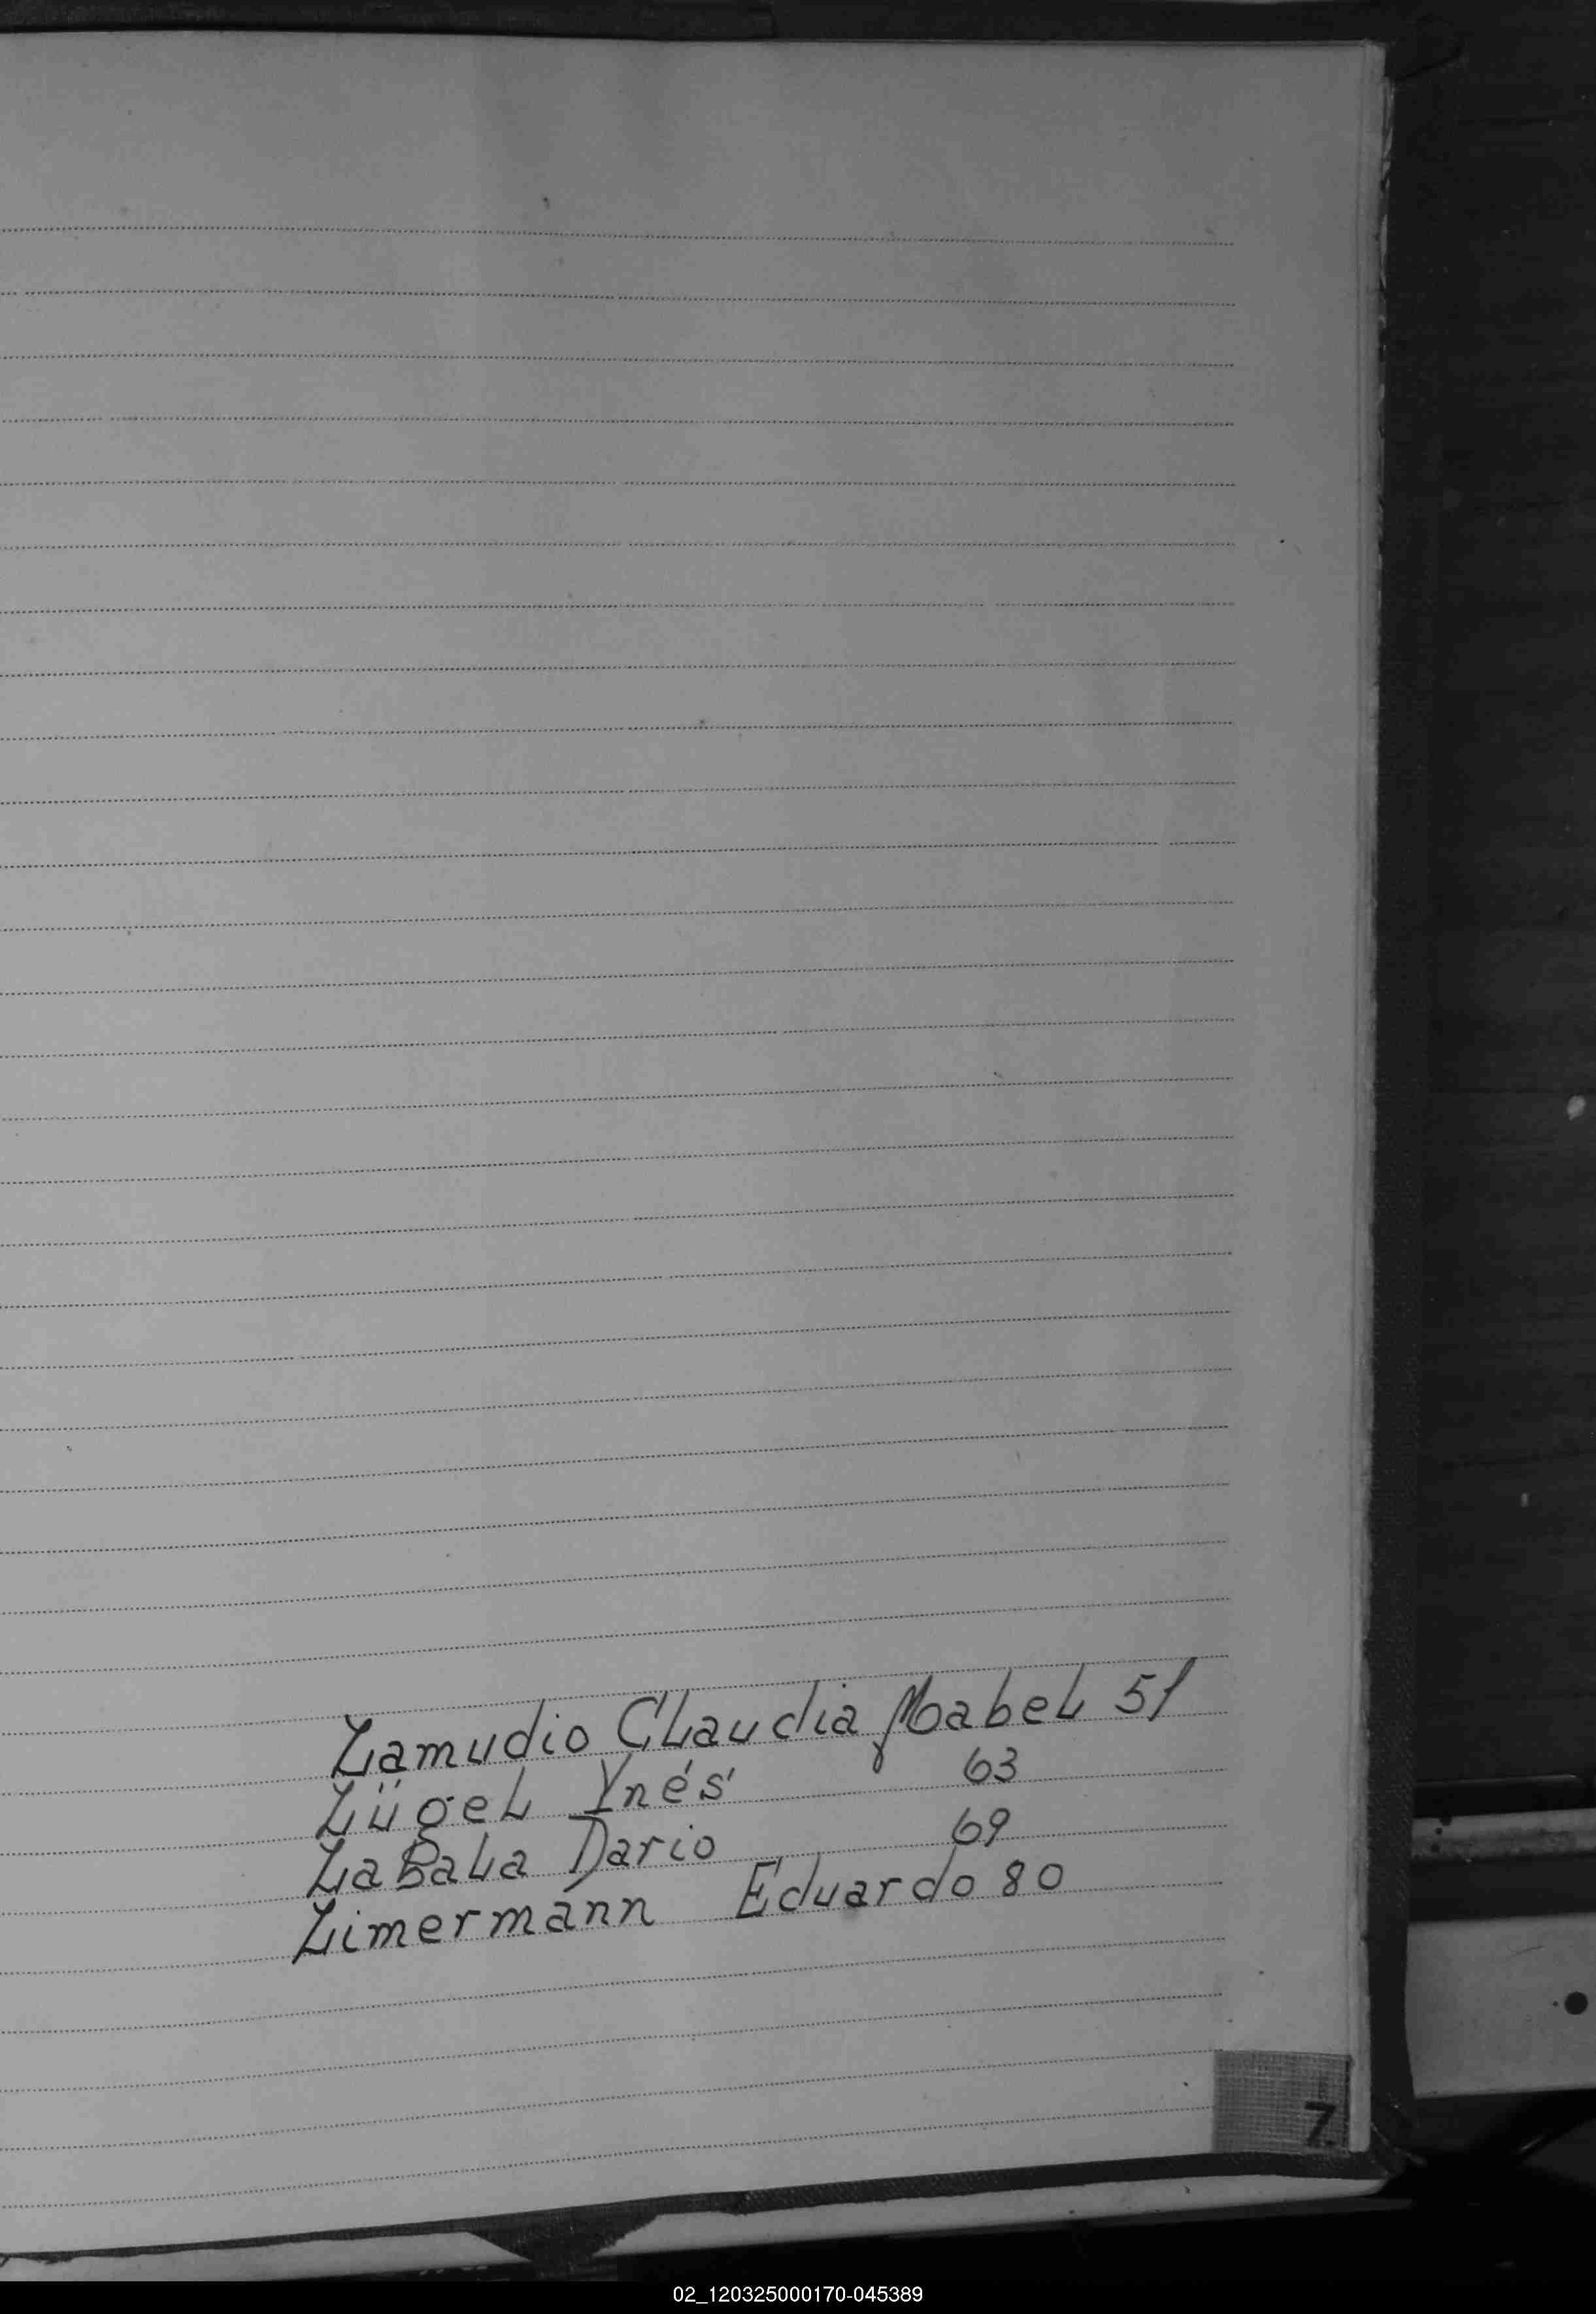 Zamudio Claudia Mabel 51
Zügel Ynés 63
Zabala Dario 69
Zimermann Eduardo 80
Z
02_120325000170-045389